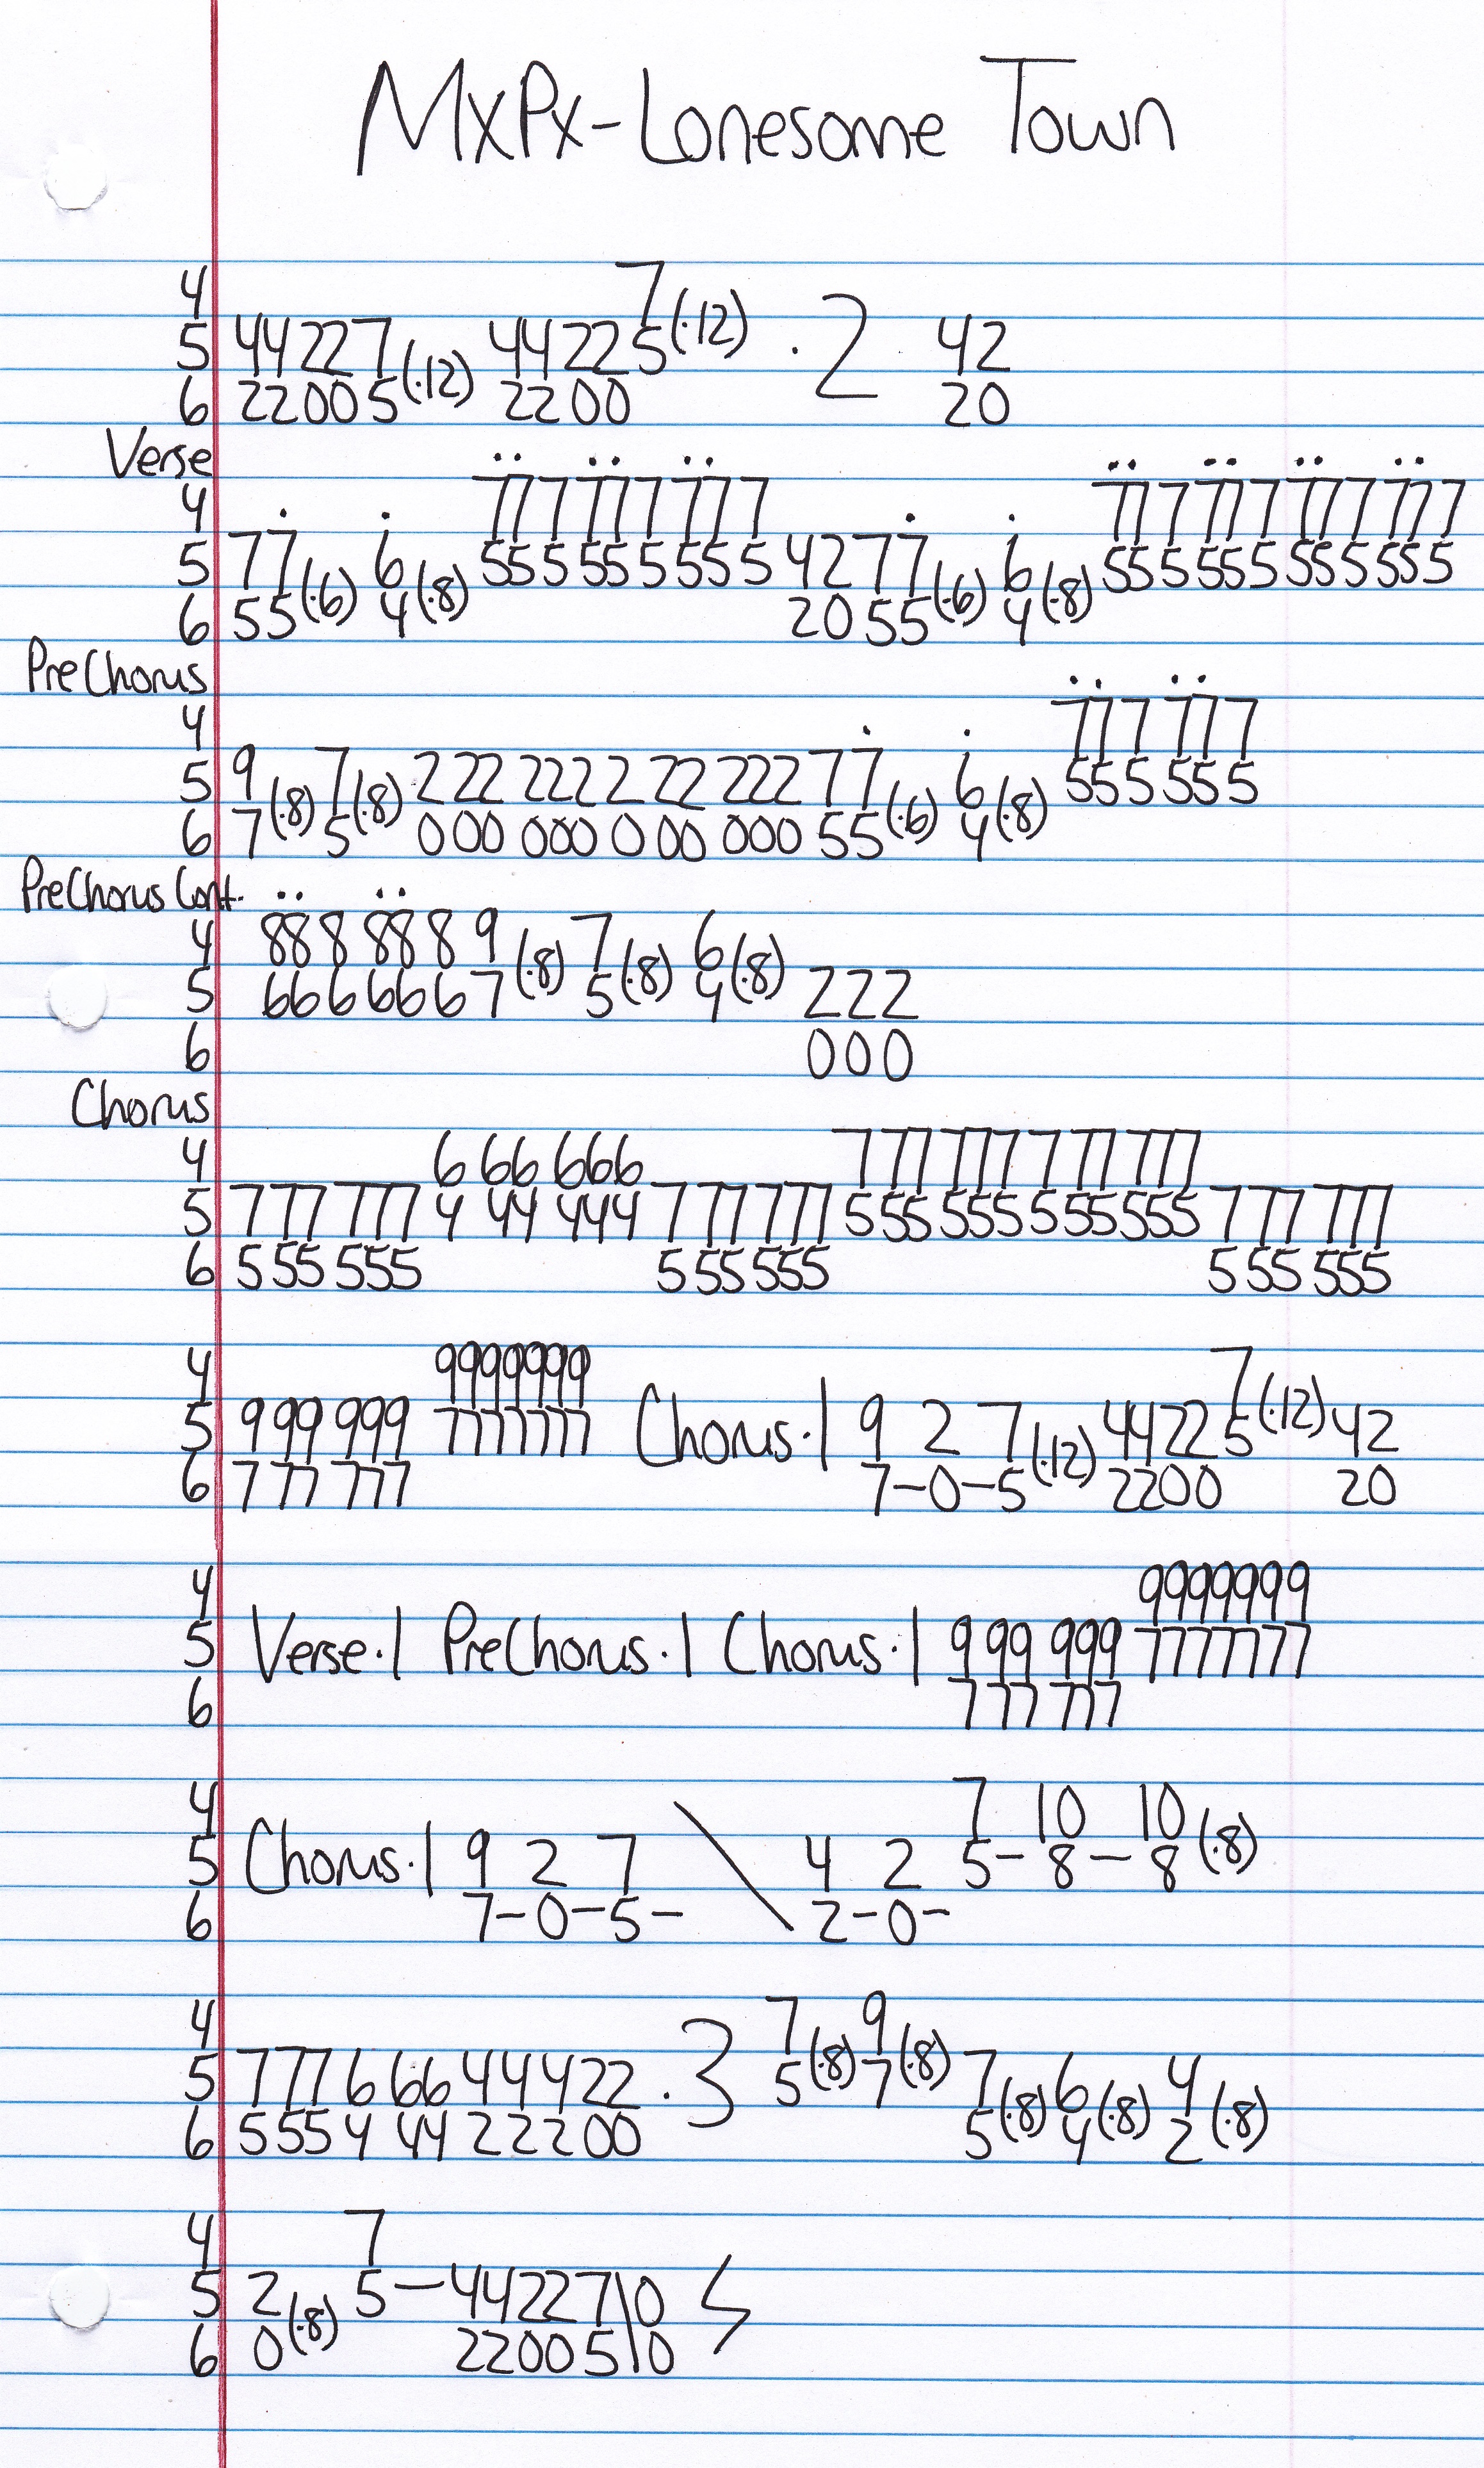 MxPx-Lonesome Town
4 7
5 44227(·12) 4422 5(·12) ·2 42
6 22005 2200 20
Verse
4 777777777 777777777777
5 77(·6) 6(·8) 555555555 4277(·6) 6(·8) 555555555555
6 55 4 2055 4
PreChorus
4 777777
5 9(·8) 7(·8) 2 22 222 2 22 222 77(·6) 6(·8) 555555
6 7 5 0 00 000 0 00 000 55 4
PreChorus Cont.
4 888888 9 7 6
5 666666 7(·8) 5(·8) 4(·8) 222
6 000
Chorus
4 6 66 666 7 77 777 7 77 777
5 7 77 777 4 44 444 7 77 777 5 55 555 5 55 555 7 77 777
6 5 55 555 5 55 555 5 55 555
4 9999999 7
5 9 99 999 7777777 Chorus·1 9 2 7(·12) 4422 5(·12) 42
6 7 77 777 7-0-5 2200 20
4 9999999
5 Verse·1 PreChorus·1 Chorus·1 9 99 999 7777777
6 7 77 777
4 7 10 10
5 Chorus·1 9 2 7 \ 4 2 5-8-8(·8)
6 7-0-5- 2-0-
4 7 9
5 777 6 66 444 22 ·3 5(·8) 7(·8) 7(·8) 6(·8) 4(·8)
6 555 4 44 222 00 5 4 2
4 7
5 2(·8) 5-44227\0
6 0 22005\0